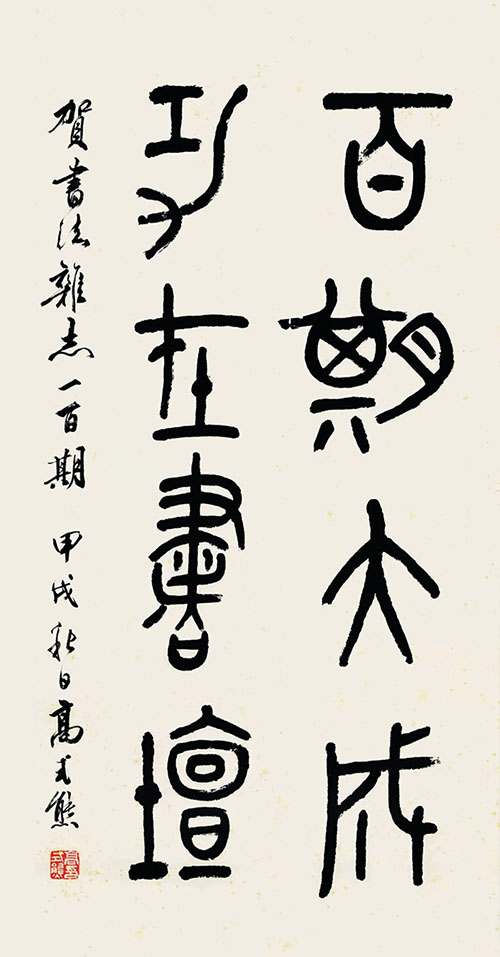 百期大成
功在書壇
賀書法雜志一百期 甲戌秋日高式熊
高式熊